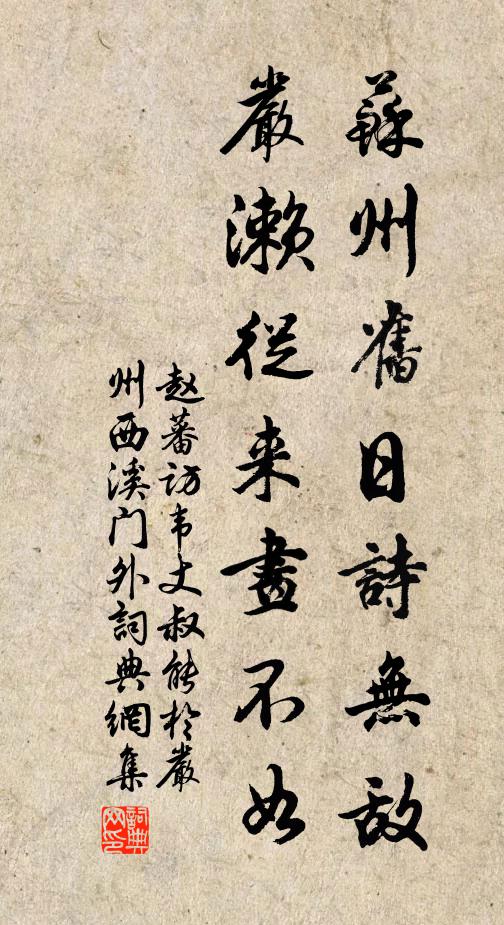 蘇州舊日詩無敌
嚴濑從来畫不如
赵蕃访韦丈叔能於嚴
州西溪门外詞典網集
詞典
网印